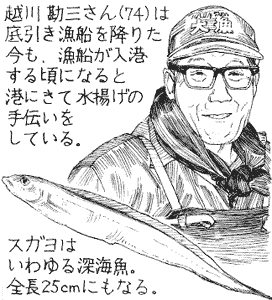 越川 勘三さん(74)は
底引き漁船を降りた
今も、漁船が入港
する頃になると
港にきて水揚げの
手伝いを
している。
大漁
スガヨは
いわゆる深海魚。
全長25cmにもなる。